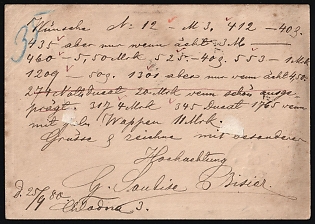 Wünsche N: 12 — M 3. 412 — 40 3.
435 aber nur wenn ächt 3 M
460 — 5,50 Mrk 525. — 40 3. 553 — 1 Mrk
1209 — 50 3. 1301 aber nur wenn ächt 450.
274 Ducat 20 Mrk wenn schön ausge-
prägt. 317 4 Mrk 345 Ducat 1765 wenn
mit Wappen 11 Mrk.
Grüsse & zeichne mit besonderer
Hochachtung
G.
25/9 80